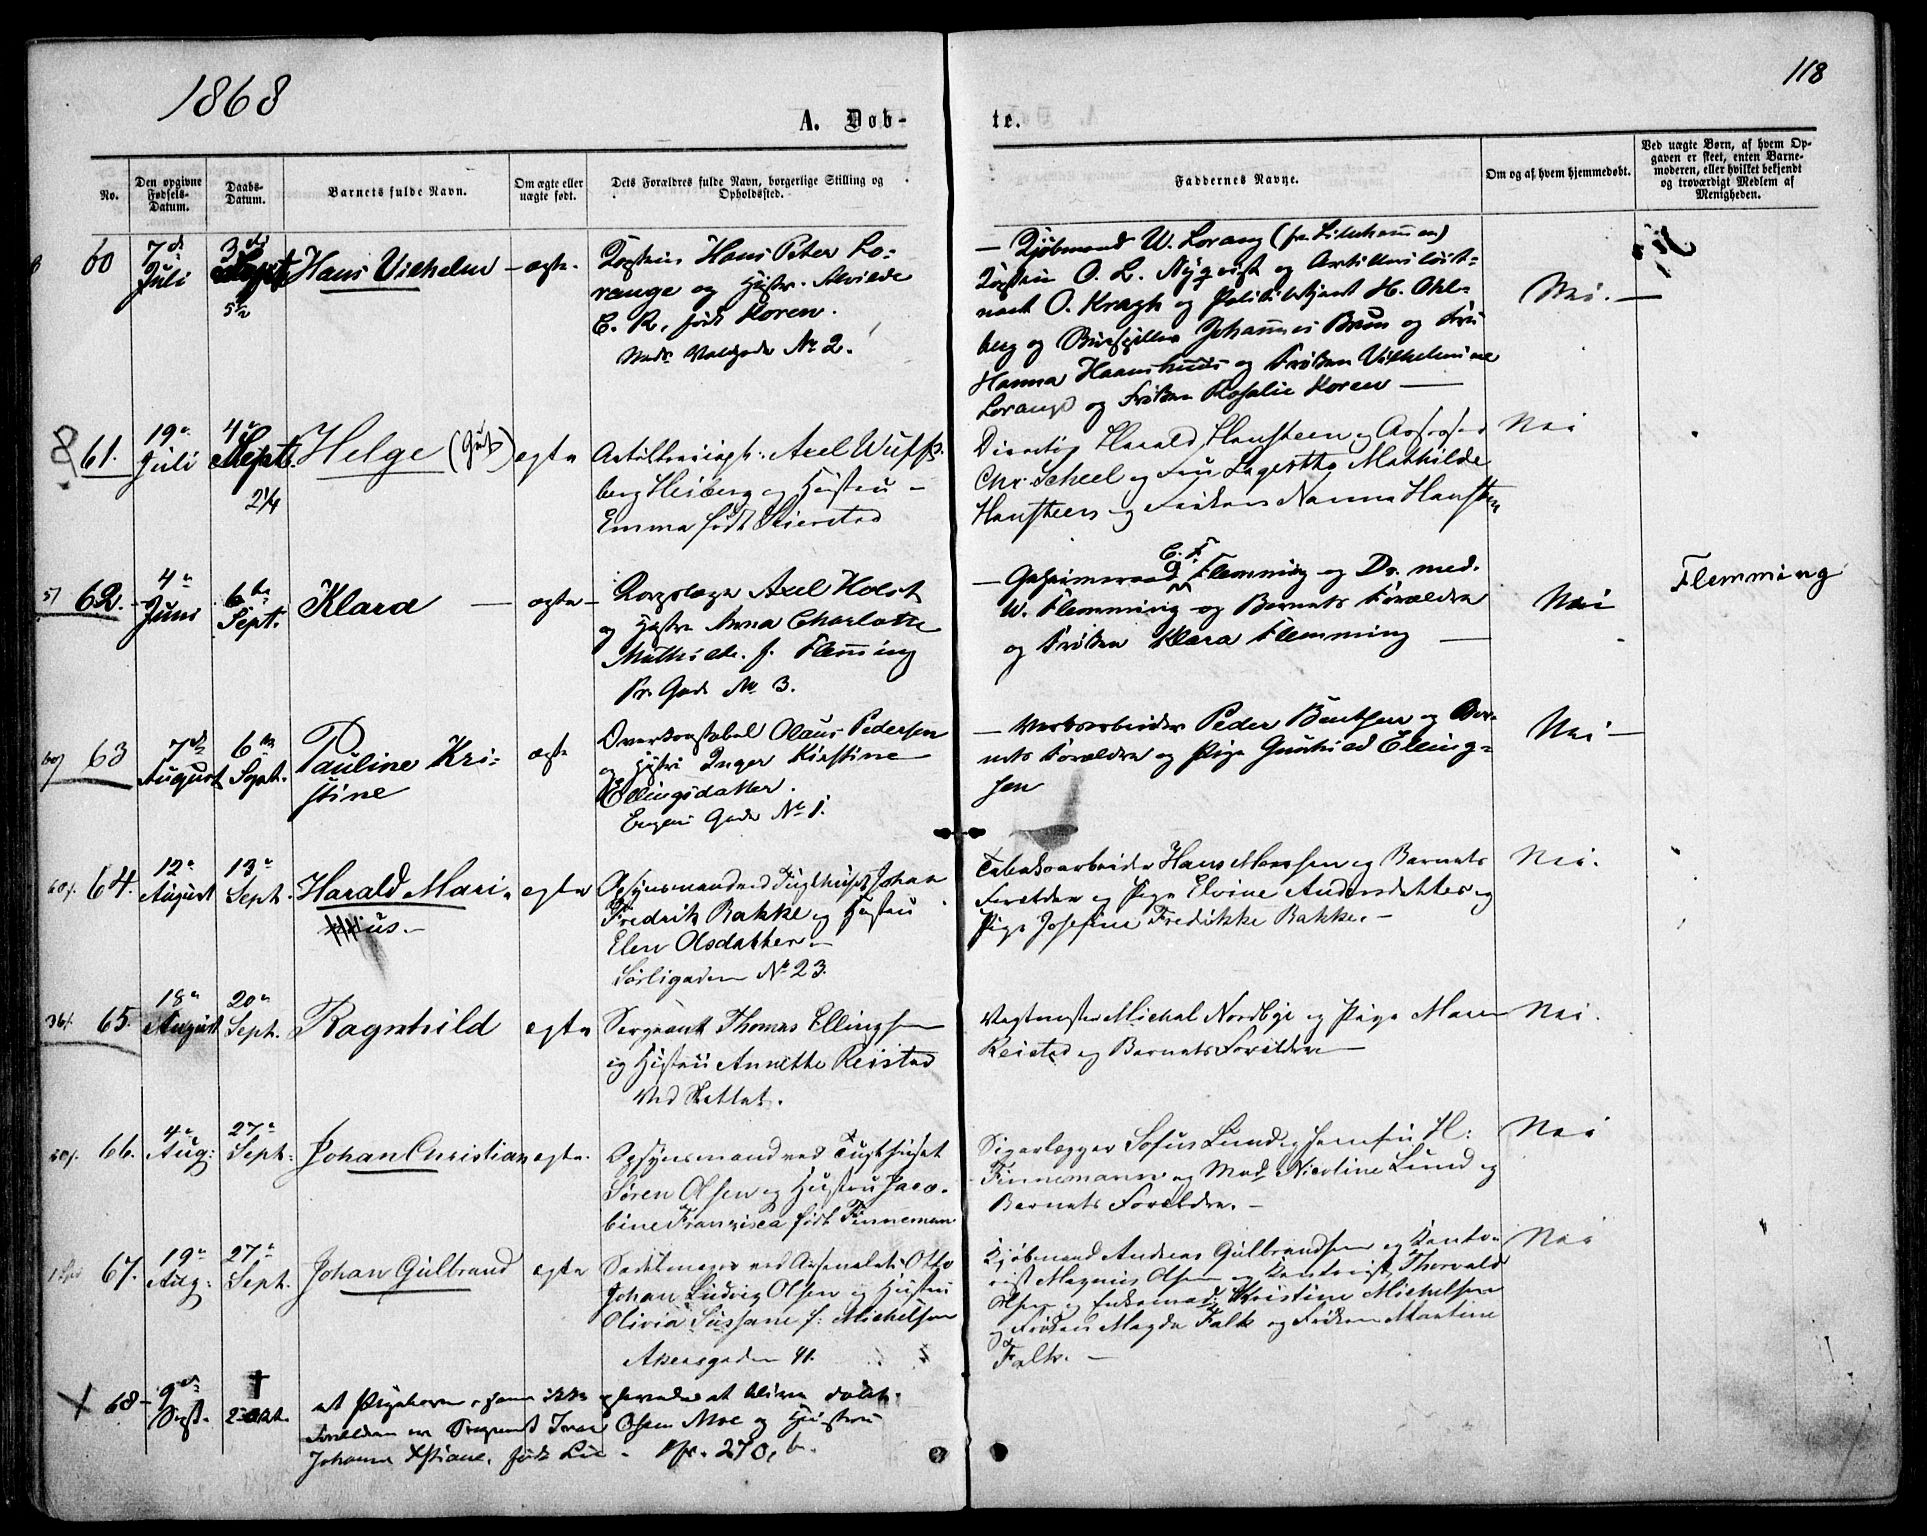 1868
118
A. Døb-
te.
No.
Den opgivne Fødsels-Datum.
Daabs-Datum.
Barnets fulde Navn.
Om ægte eller uægte født.
Dets Forældres fulde Navn, borgerlige Stilling og Opholdssted.
Faddernes Navne.
Om og af hvem hjemmedøbt.
Ved uægte Børn, af hvem Op-
gaven er skeet, enten Barne-
moderen, eller hvilket bekjendt
og troværdigt Medlem af
Menigheden.
60
7de Juli
3die Sept.
Hans Vilhelm
ægte.
Hans Peter Lo-
range og Hustru Alvilde
C. R., født Koren.
Voldgade No 2.
Kjøbmand W. Lorang (fra Lillehammer)
O. L. Nyqvist og
nant O. Kragh og H. Ohl-
berg og Johannes Brun og Fru
Hanna og Frøken Vilhelmine
Lorange og Frøken Rosalie Koren
Nei.
61.
19de Juli
4de Sept.
Helge
ægte
Axel
berg Heiberg og Hustru
Emma født
Harald Hansteen og
Chr. Scheel og Fru Mathilde
Hansteen og Frøken Nanna Hansteen
Nei
62.
4de Juni
6te Sept.
Klara
ægte
Korpslæge Axel Holst
og Hustru Anna Charlotte
Mathilde f. Flemming
Pr. Gade No 3.
Geheimeraad C. F. Flemming og Dr. med.
W. Flemming og Barnets Forældre
og Frøken Klara Flemming
Nei
Flemming
63
7de August
6te Sept.
Pauline Kri-
stine
ægte
Overkonstabel Olaus Pedersen
og Hustru Inger Kirstine
Ellingsdatter.
Gade No 1.
Verksarbeider Peder Bentsen og Bar-
nets Forældre og Pige Gunhild Elling-
sen
Nei
64.
12te August
13de Sept.
Harald Mari-
us.
ægte
Opsynsmand ved Tugthuset Johan
Fredrik Bakke og Hustru
Elen Olsdatter
Sørligaden No 23.
Tobaksarbeider Hans Monsen og Barnets
Forældre og Pige Elvine Andersdatter og
Pige Josefine Fredrikke Bakke.
Nei.
65.
18de August
20de Sept.
Ragnhild
ægte
Sergeant Thomas Ellingsen
og Hustru Annette Reistad
Ved
Vagtmester Michal Nordbye og Pige Maren
Reistad og Barnets Forældre
Nei.
66.
4de Aug:
27de Sept.
Johan Christian
ægte.
Opsynsmand ved Tugthuset
Søren Olsen og Hustru Jaco-
bine Franzisca født Finneman
Sofus Lund og H:
Finnemann og Mad. Nicoline Lund og
Barnets Forældre.
Nei
67.
19de Aug:
27de Sept.
Johan Gulbrand
ægte
Sadelmager ved Arsenalet Otto
Johan Ludvig Olsen og Hustru
Olivia Susane f: Michelsen
Akersgaden 41.
Kjøbmand Andreas Gulbrandsen og Konto-
rist Magnus Olsen og Kontorist Thorvald
Olsen og Enkemad: Kristine Michelsen
og Frøken Magda Falk og Frøken Martine
Falk.
Nei
68
9de Sept.
2 Okt.
et Pigebarn, som ikke at blive døbt.
Forældrene ere Sergeant Iver Olsen Moe og Hustru
Johanne Xstiane, født Lie
270, b.